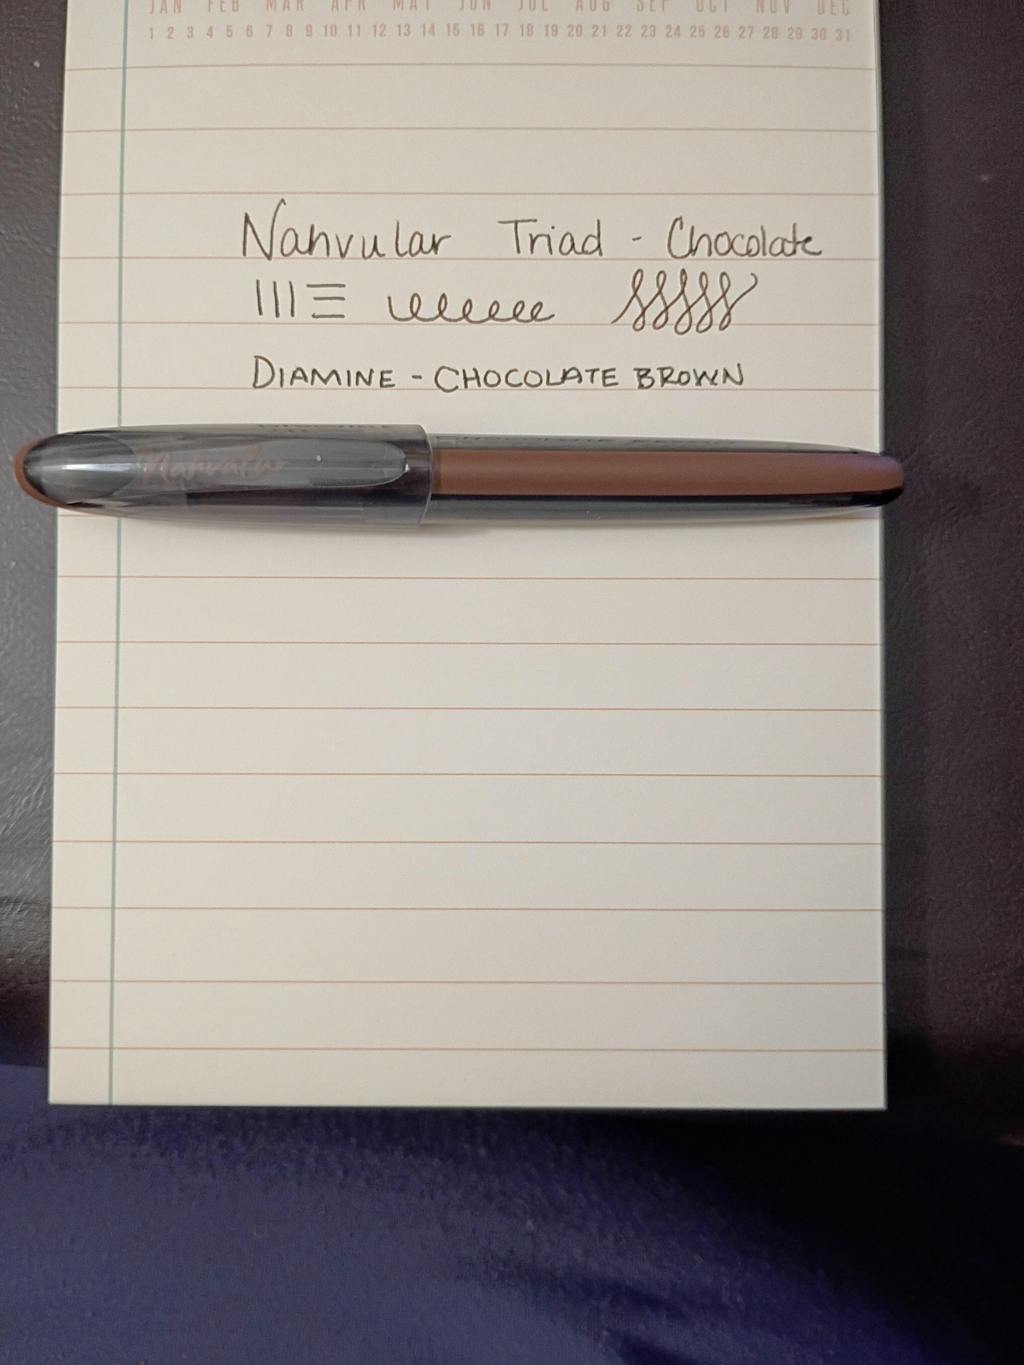 JAN FEB MAR APR MAY JUN JUL AUG SEP OCT NOV DEC
1 2 3 4 5 6 7 8 9 10 11 12 13 14 15 16 17 18 19 20 21 22 23 24 25 26 27 28 29 30 31
Nahvular Triad - Chocolate
DIAMINE - CHOCOLATE BROWN
Nahvalur